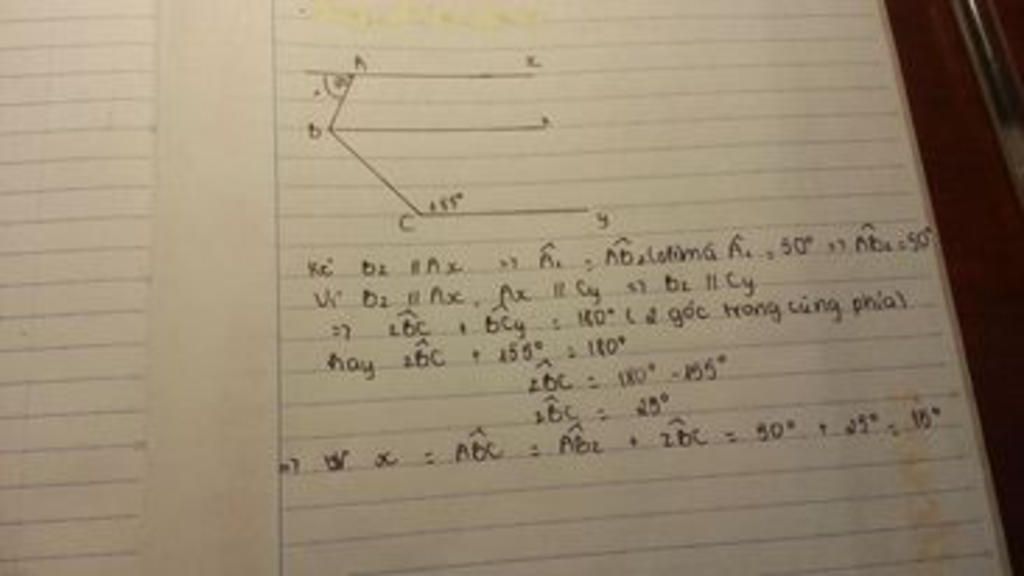 A x
B
155°
C y
Kẻ Bz // Ax => Â₁ = AB̂z mà Â₁ = 50° => AB̂z = 50°
Vì Bz // Ax, Ax // Cy => Bz // Cy
=> zB̂C + BĈy = 180° (2 góc trong cùng phía)
hay zB̂C + 155° = 180°
zB̂C = 180° - 155°
zB̂C = 25°
=> x = AB̂C = AB̂z + zB̂C = 50° + 25° =